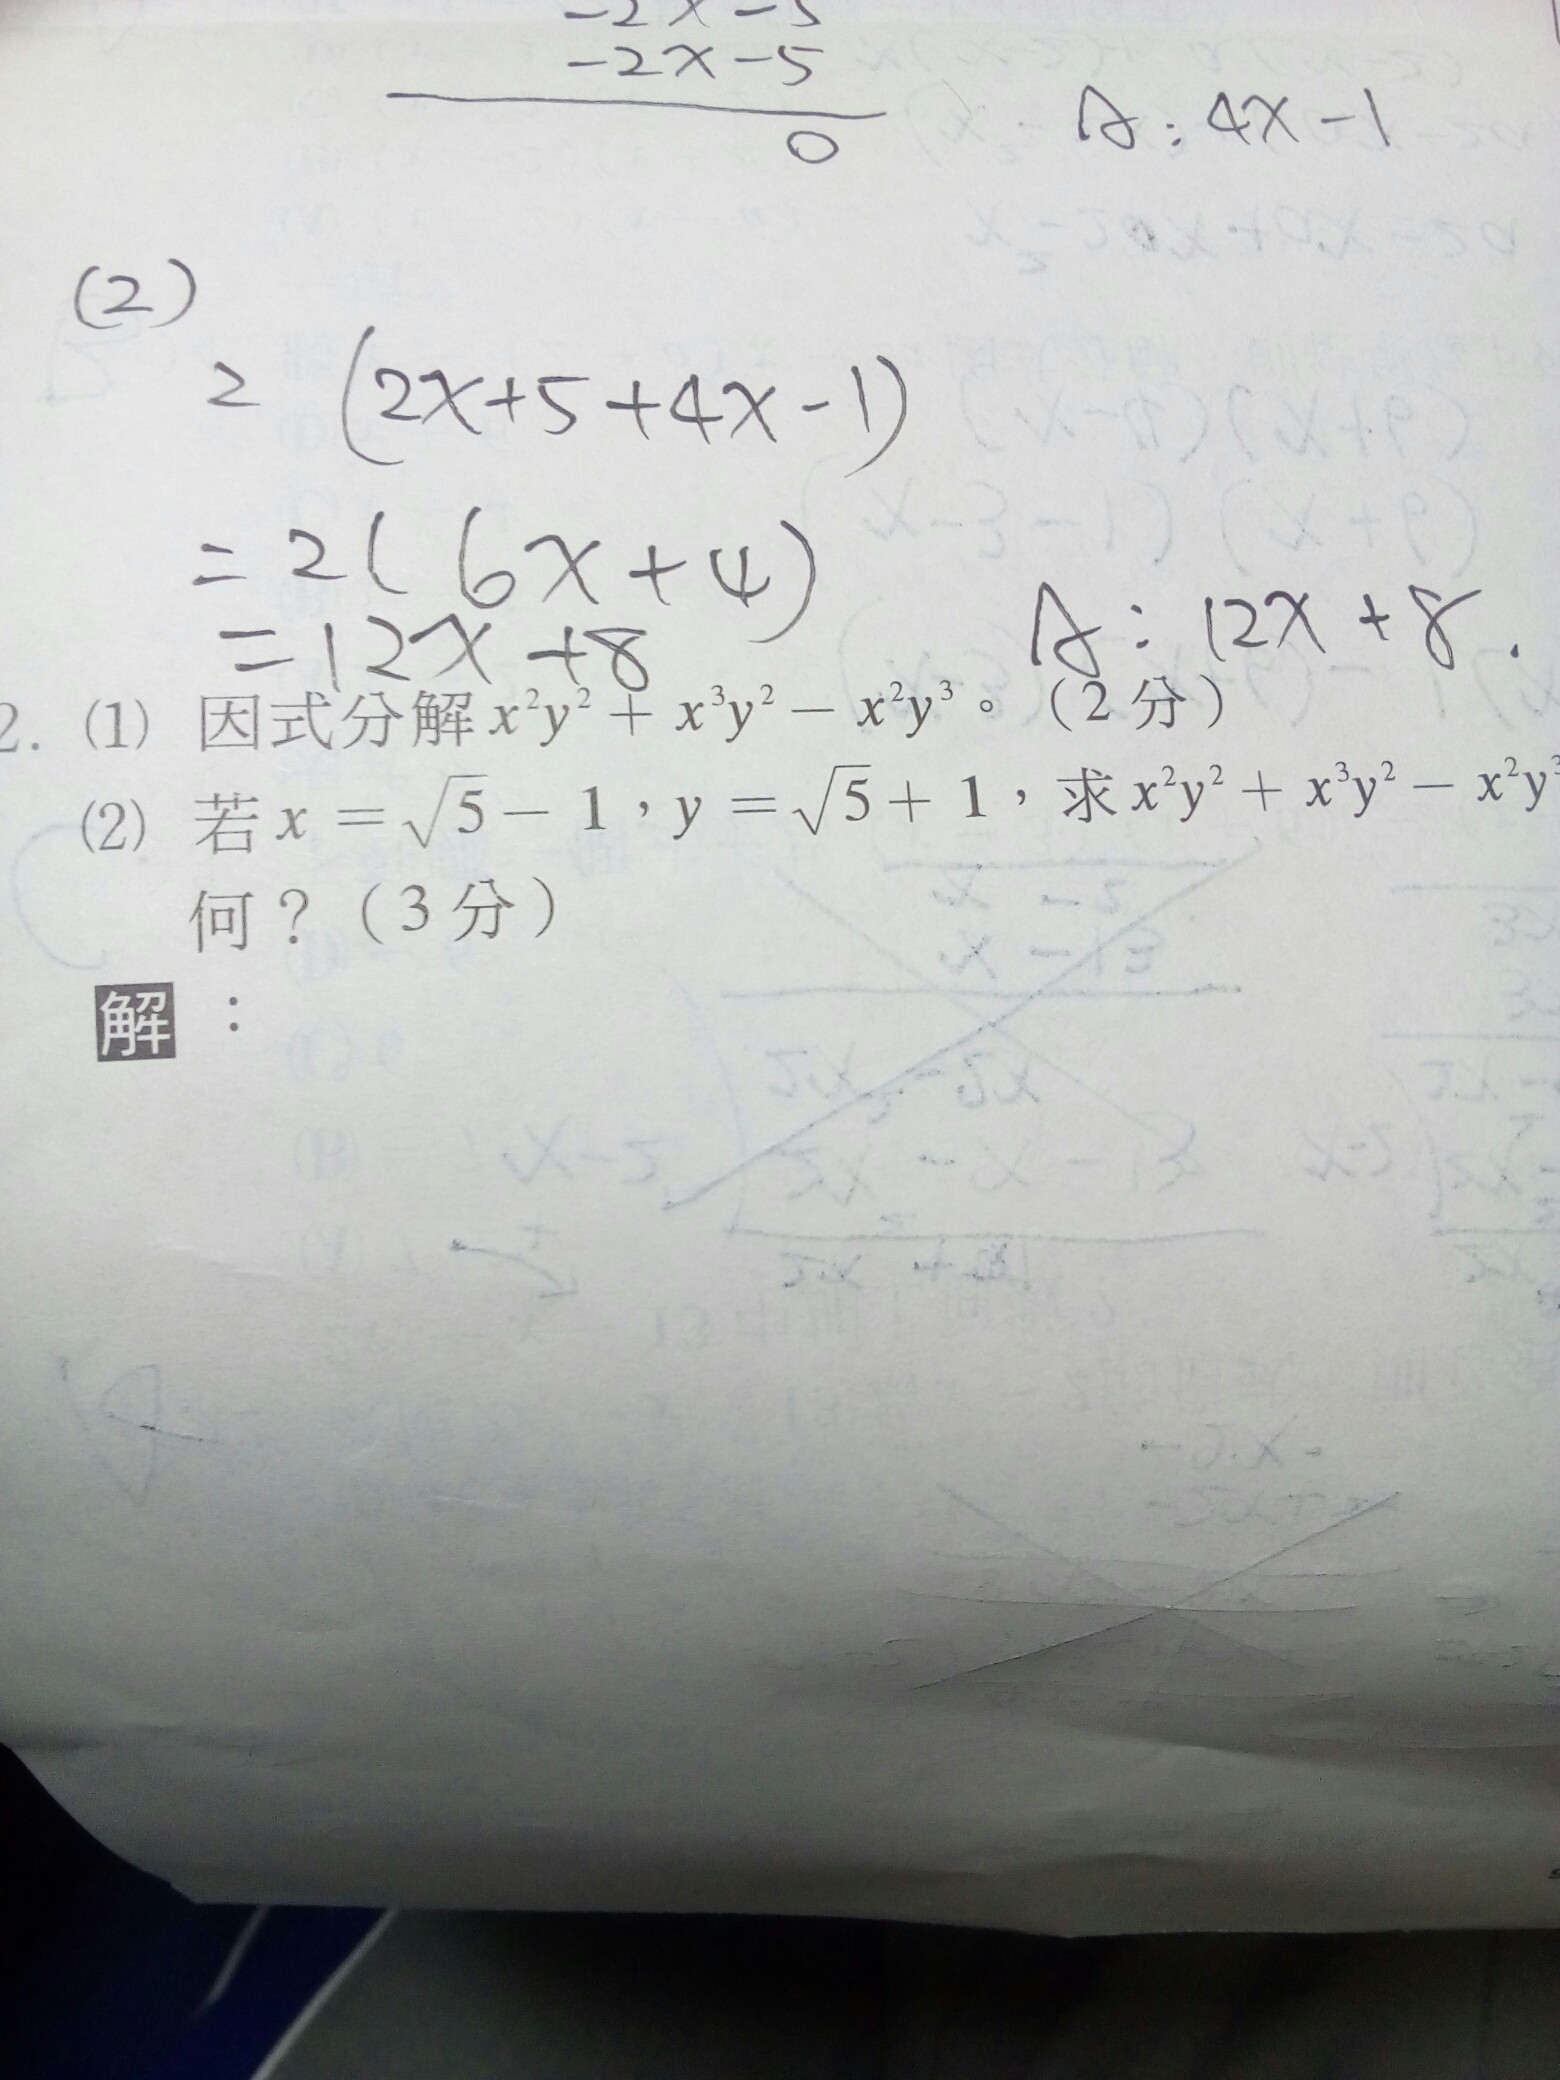 -2x-5
-2x-5
0
A:4x-1
(2)
2 (2x+5+4x-1)
=2(6x+4)
=12x+8
A:12x+8.
2. (1) 因式分解x²y² + x³y² − x²y³。(2分)
(2) 若x = √5 − 1,y = √5 + 1,求x²y² + x³y² − x²y³
何?(3分)
解: